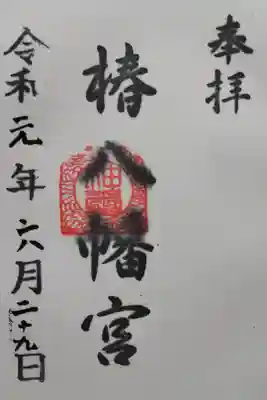 奉拝
椿八幡宮
令和元年六月二十九日